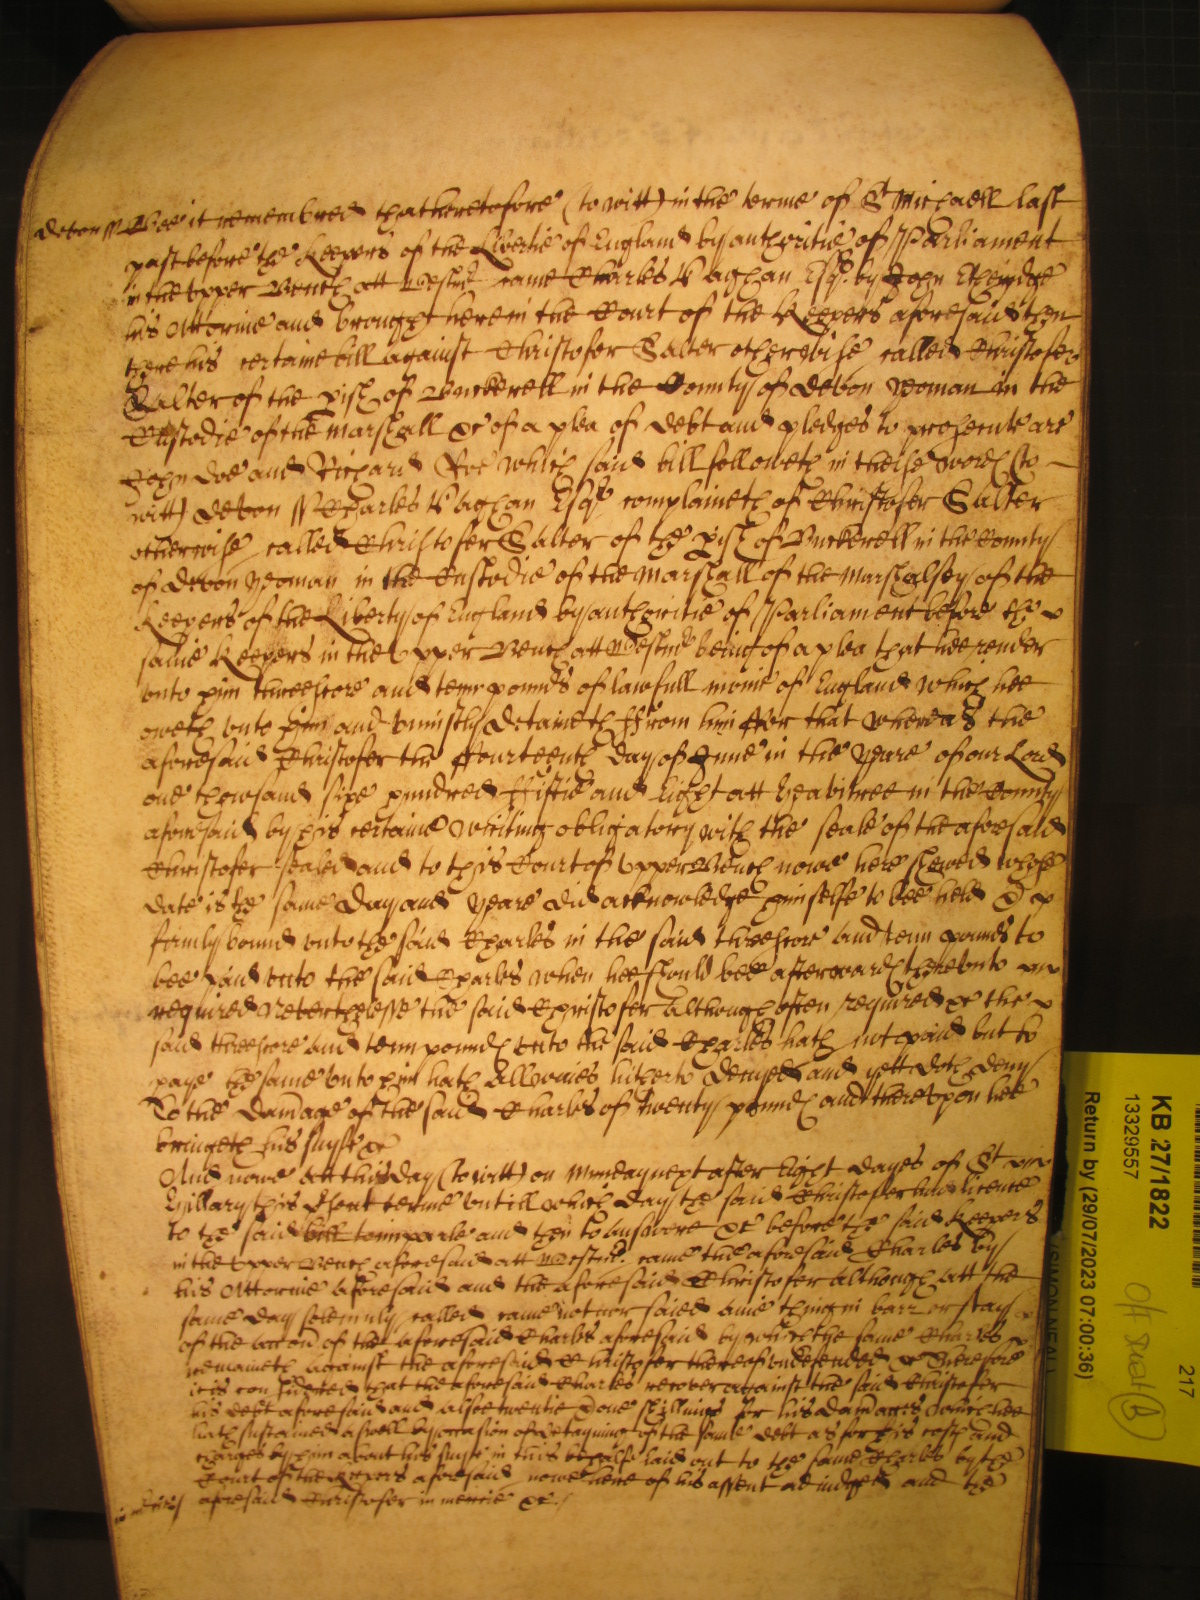 Devon ss Bee it remembred that heretofore (to witt) in the terme of St Michaell last
past before the Keepers of the Libertie of England by authoritie of Parliament
in the Upper Bench att Westmr came Charles Vaghan Esqr. by John Etheridge
his Attornie and brought here in the Court of the Keepers aforesaid then
there his certaine bill against Christofer Salter otherwise called Christofer
Salter of the pish of Buckerell in the County of Devon yeoman in the
Custodie of the Marshall &c of a plea of debt and pledges to prosecute are
John Doe and Richard Roe which said bill followeth in theise words (to
witt) Devon ss Charles Vaghan Esqr complaineth of Christofer Salter
otherwise called Christofer Salter of the pish of Buckerell in the County
of Devon yeoman in the Custodie of the Marshall of the Marshalsey of the
Keepers of the Liberty of England by authoritie of Parliament before the
same Keepers in the Upper Bench att Westmr being of a plea that hee render
unto him threescore and tenn pounds of lawfull monie of England which hee
oweth unto him and uniustly detaineth ffrom him ffor that whereas the
aforesaid Christofer the ffourteenth day of June in the yeare of our Lord
one thowsand sixe hundred ffiftie and Eight att Heavitree in the County
aforesaid by his certaine writing obligatory with the seale of the aforesaid
Christofer sealed and to this Court of Upper Bench nowe here shewed whose
date is the same day and yeare did acknowledge himselfe to bee held &
firmly bound unto the said Charles in the said threescore and tenn pounds to
bee paid unto the said Charles when hee should bee afterwards thereunto
required Neverthelesse the said Christofer although often required &c the
said threescore and tenn pounds unto the said Charles hath not paid but to
paye the same unto him hath allwaies hitherto denyed and yett doth deny
To the damage of the said Charles of twenty pounds and thereupon hee
bringeth his suyte &c
And nowe att this day (to witt) on Munday next after Eight dayes of St
Hillary this psent terme untill which day the said Christofer had licence
to the said bill to imparle and then to answere &c before the said Keepers
in the Upper Bench aforesaid att Westmr. came the aforesaid Charles by
his Attornie aforesaid and the aforesaid Christofer although att the
same day solemnly called came not nor saied anie thing in barr or stay
of the accon of the aforesaid Charles aforesaid by which the same Charles
remaineth against the aforesaid Christofer thereof undefended &c Therefore
it is considered that the aforesaid Charles recover against the said Christofer
his debt aforesaid and alsoe twentie & one shillings for his damages which hee
hath sustained aswell by occasion of detayning of the same debt as for his costs and
charges by him about his suyte in this behalfe laid out to the same Charles by the
Court of the Keepers aforesaid nowe here of his assent adiudged and the
in mercie aforesaid Christofer in mercie &c.
KB 27/1822
13329557
Return by (29/07/2023 07:00:36)
SIMON NEAL
217